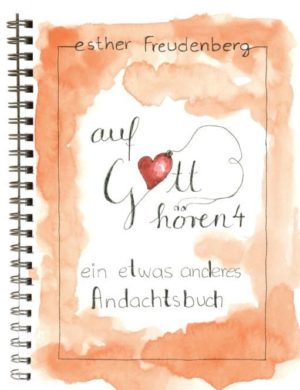 esther Freudenberg
auf
Gott
hören 4
ein etwas anderes
Andachtsbuch